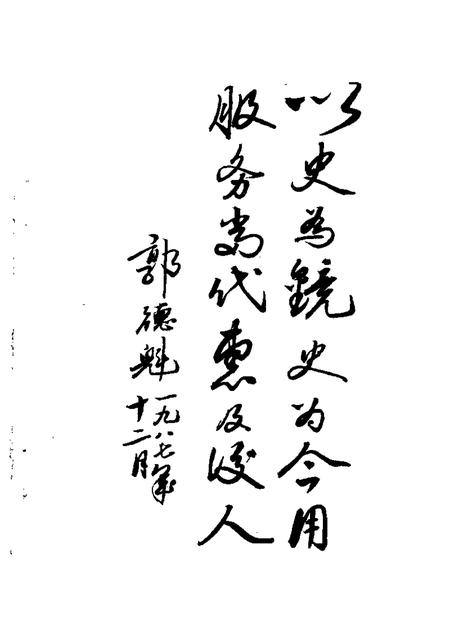 以史為鏡史为今用
服务当代惠及後人
郭德魁一九八七年
十二月